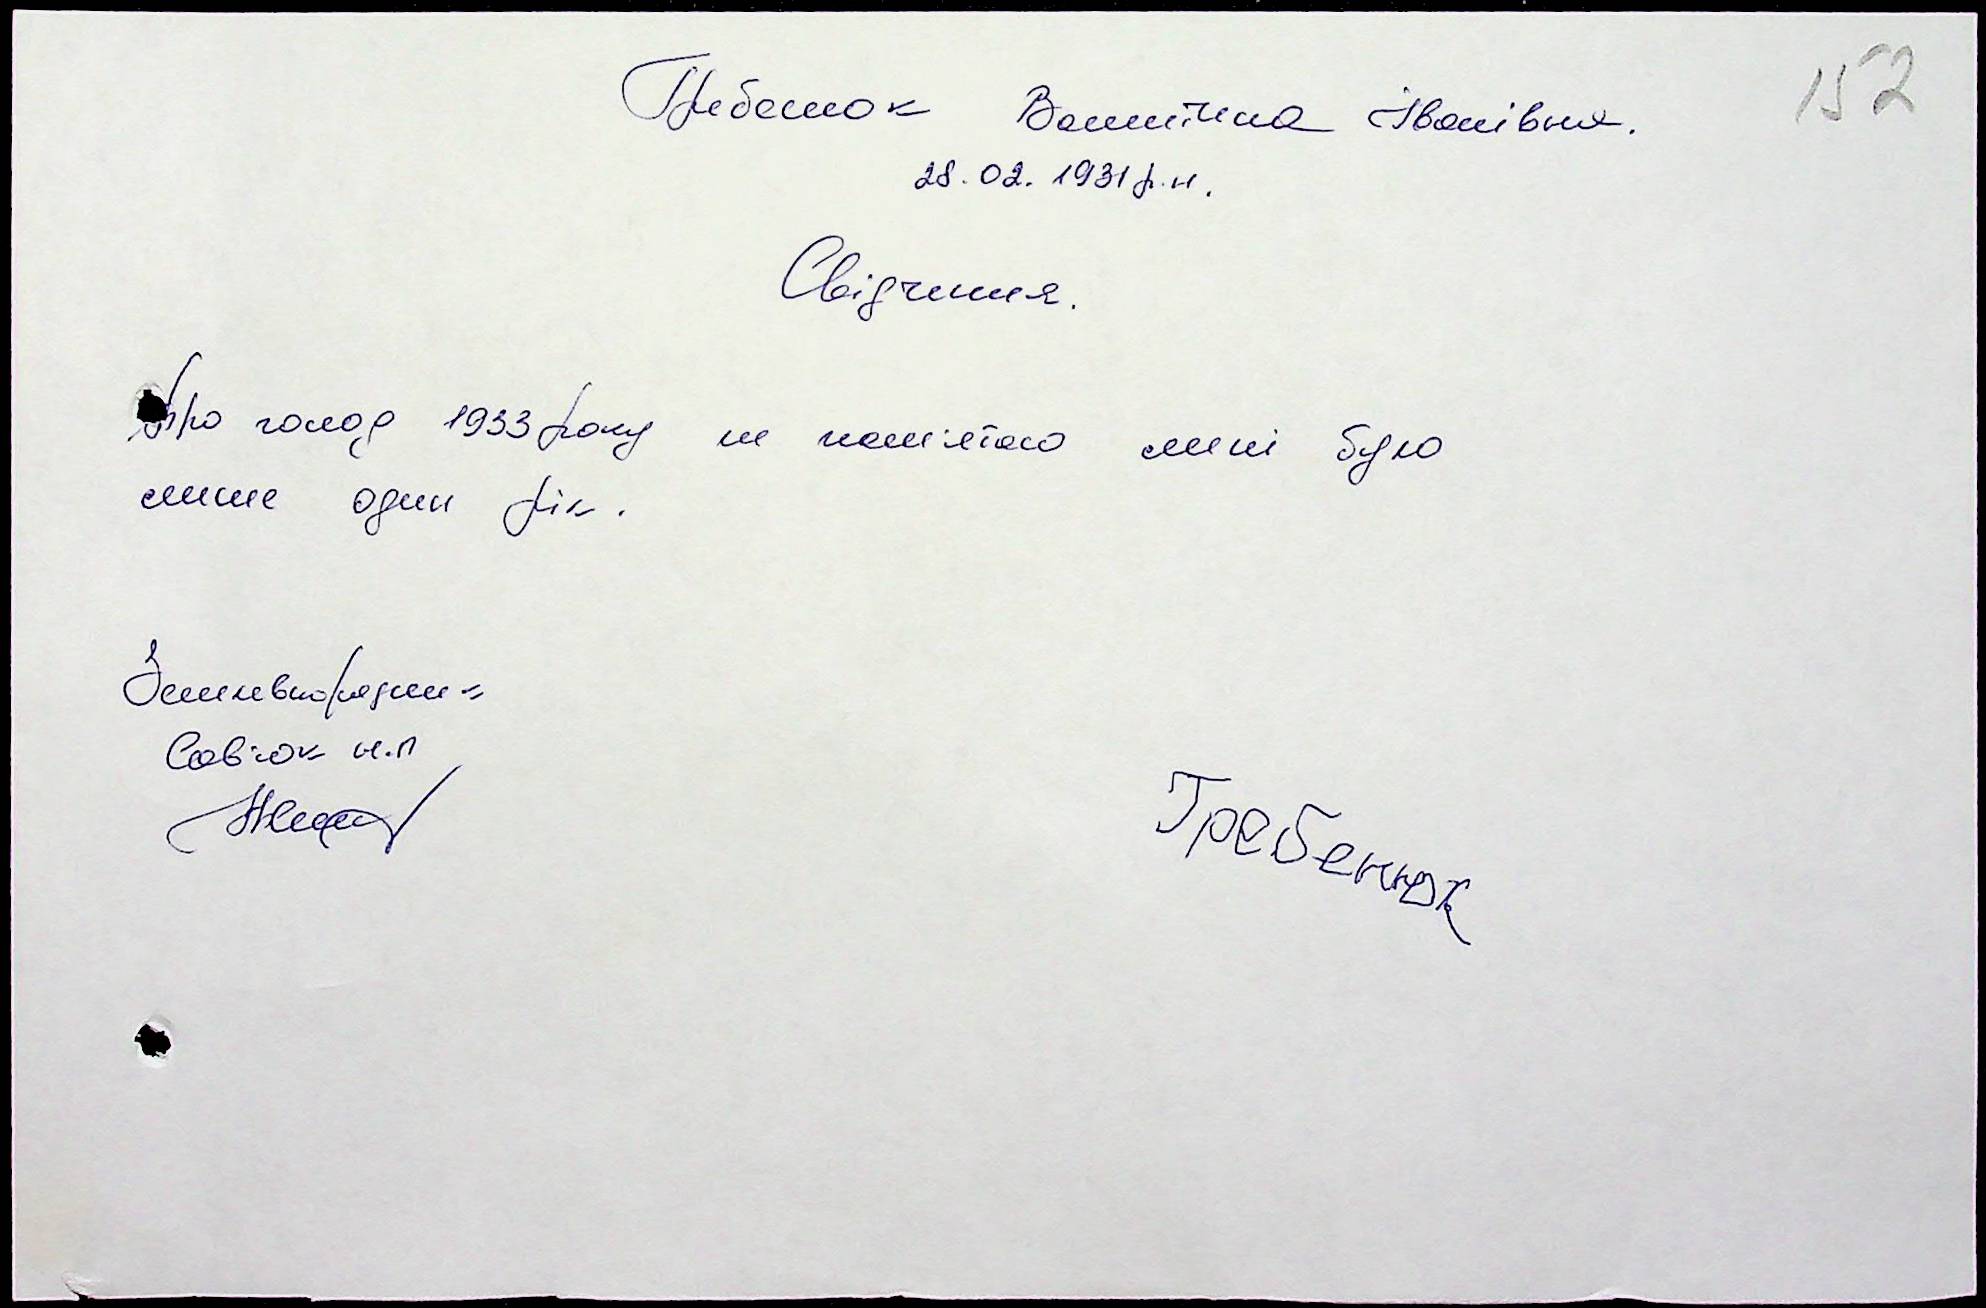 152
Гребенюк Валентина Іванівна.
28.02.1931 р.н.
Свідчення.
Про голод 1933 року не пам'ятаю мені було
лише один рік.
Землевпорядник
Савіюк Н.П
Гребенюк